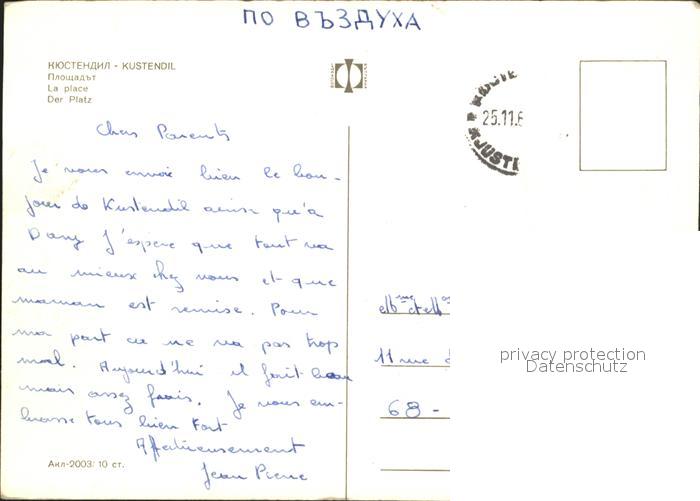 ПО ВЪЗДУХА
КЮСТЕНДИЛ - KUSTENDIL
Площадът
La place
Der Platz
25.11.6
KJUSTE
Chers Parents
Je vous envoie bien le bon-
jour de Kustendil ainsi qu'à
Dany J'espère que tout va
au mieux chez vous et que
maman est remise. Pour
ma part ça ne va pas trop
mal. Aujourd'hui il fait beau
mais assez frais. Je vous em-
brasse tous bien fort
Affectueusement
Jean Pierre
Акл-2003/10 ст.
Mme et
11 rue
68 -
privacy protection
Datenschutz